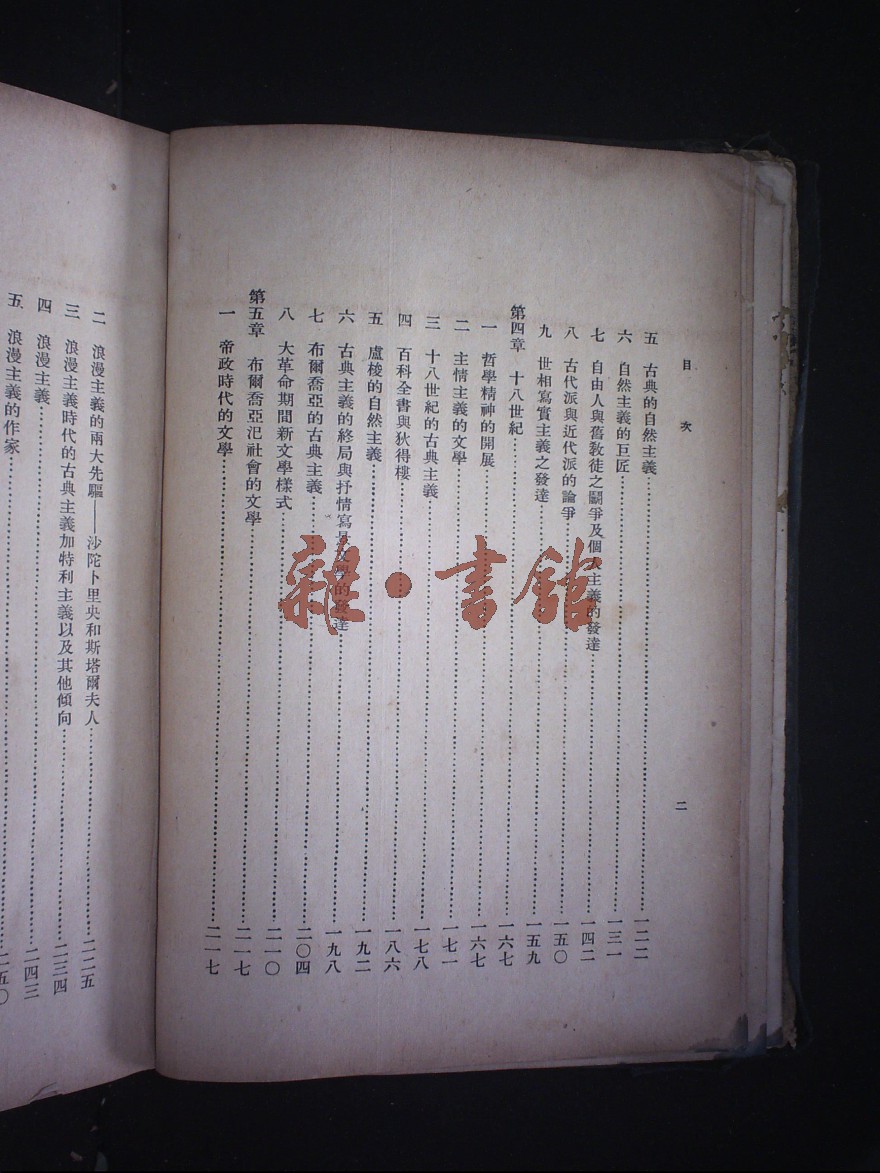 目次
二
五 古典的自然主義 一二二
六 自然主義的巨匠 一三一
七 自由人與舊教徒之鬬爭及個人主義的發達 一四二
八 古代派與近代派的論爭 一五〇
九 世相寫實主義之發達 一五九
第四章 十八世紀 一六七
一 哲學精神的開展 一六七
二 主情主義的文學 一七一
三 十八世紀的古典主義 一七八
四 百科全書與狄得樓 一八六
五 盧梭的自然主義 一九二
六 古典主義的終局與抒情寫景文學的發達 一九八
七 布爾喬亞的古典主義 二〇四
八 大革命期間新文學樣式 二一〇
第五章 布爾喬亞氾社會的文學 二一七
一 帝政時代的文學 二一七
二 浪漫主義的兩大先驅——沙陀卜里央和斯塔爾夫人 二二五
三 浪漫主義時代的古典主義加特利主義以及其他傾向 二三四
四 浪漫主義 二四三
五 浪漫主義的作家 二五〇
雜·書館